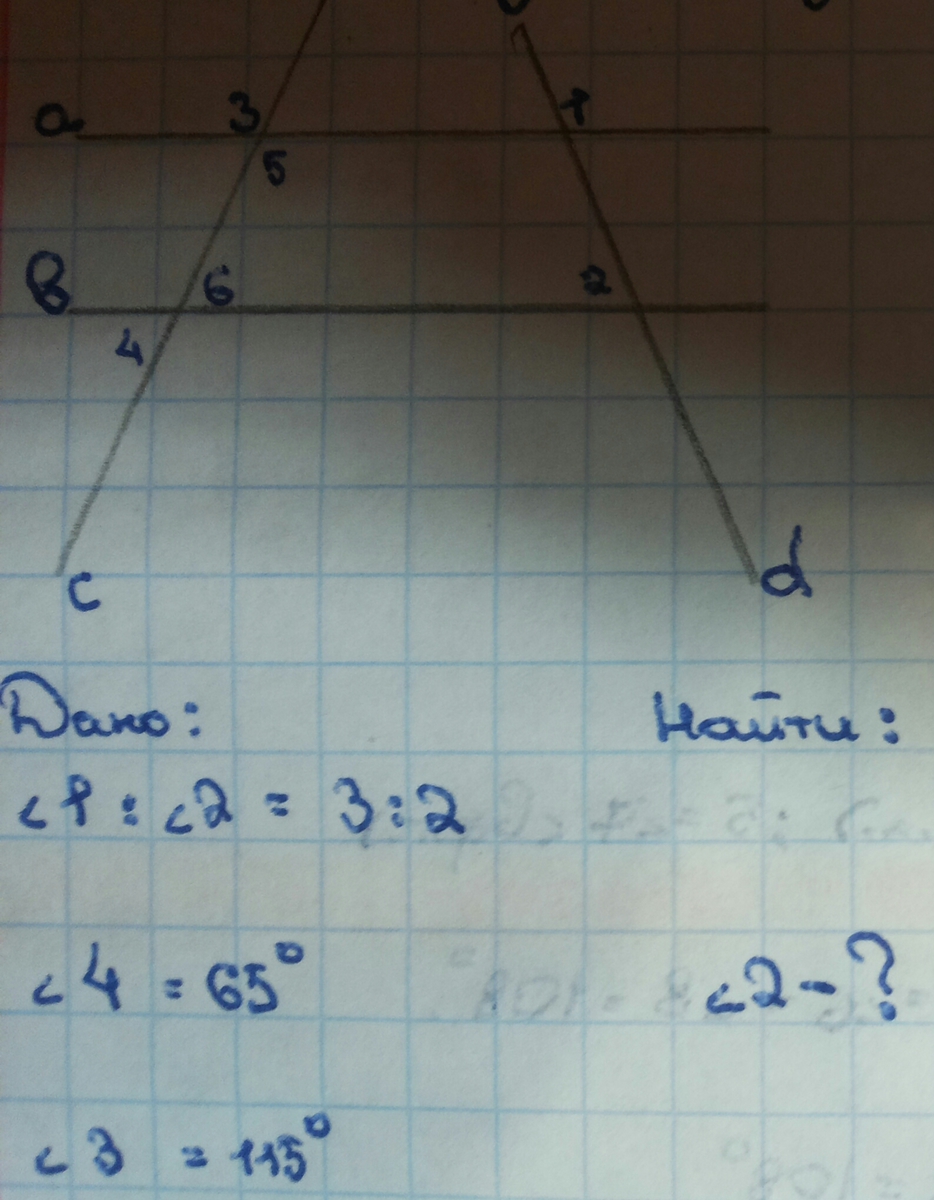 3 1
a
5
в 6 2
4
c d
Дано: Найти:
<1 : <2 = 3:2
<4 = 65° <2 - ?
<3 = 115°